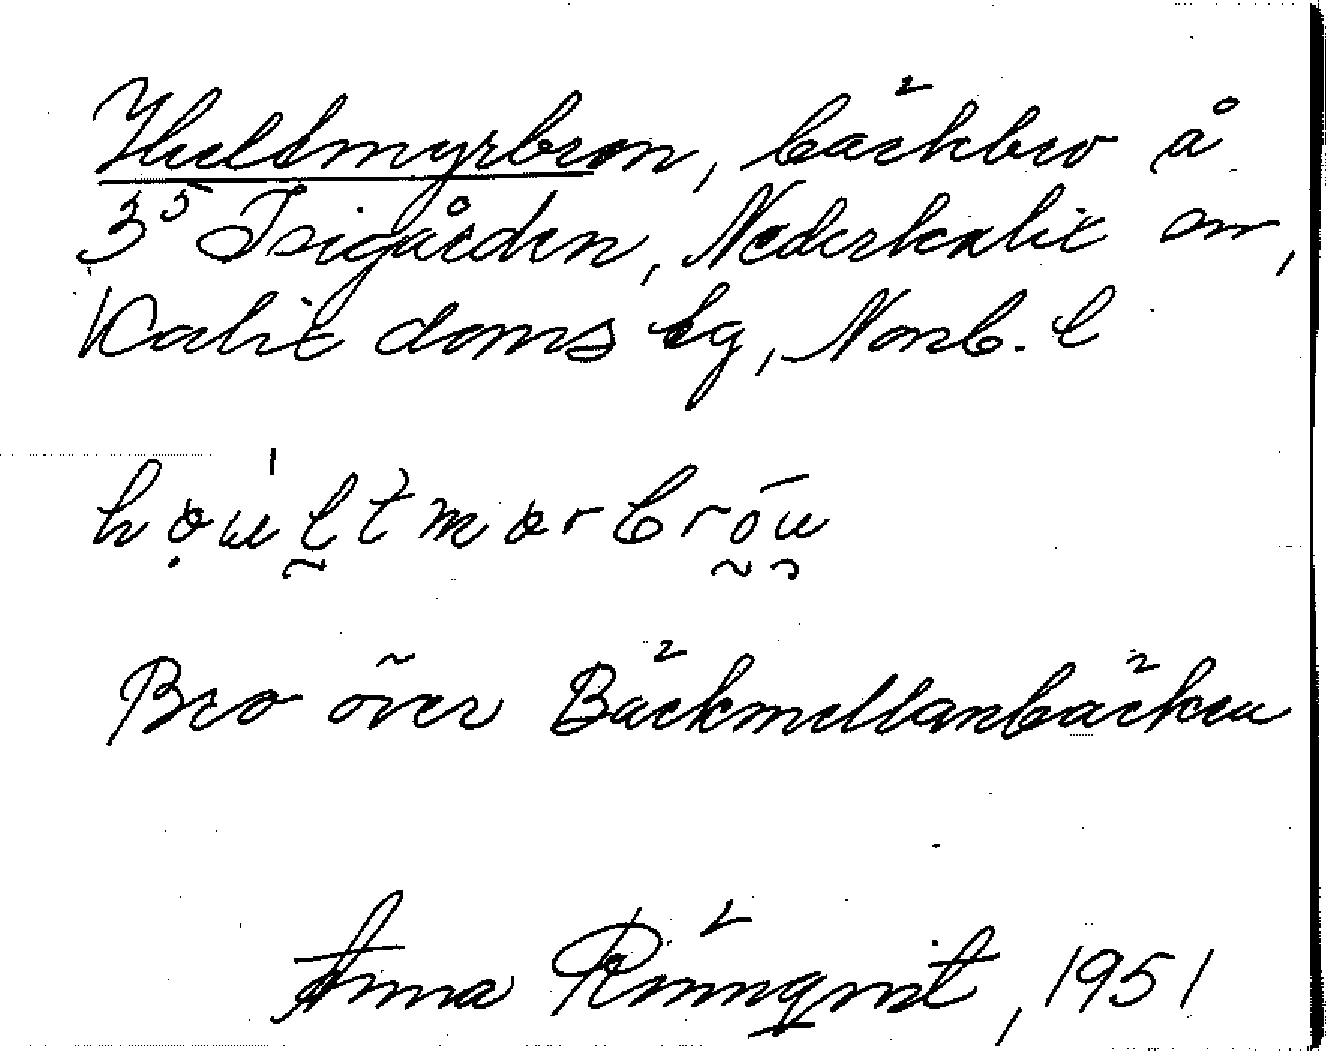 Hultmyrbron, bäckbro å
3⁵ Trigården, Nederkalix sn,
Kalix doms lg, Norrb. l
Bro över Bäckmellanbäcken
Anna Rönnqvist, 1951